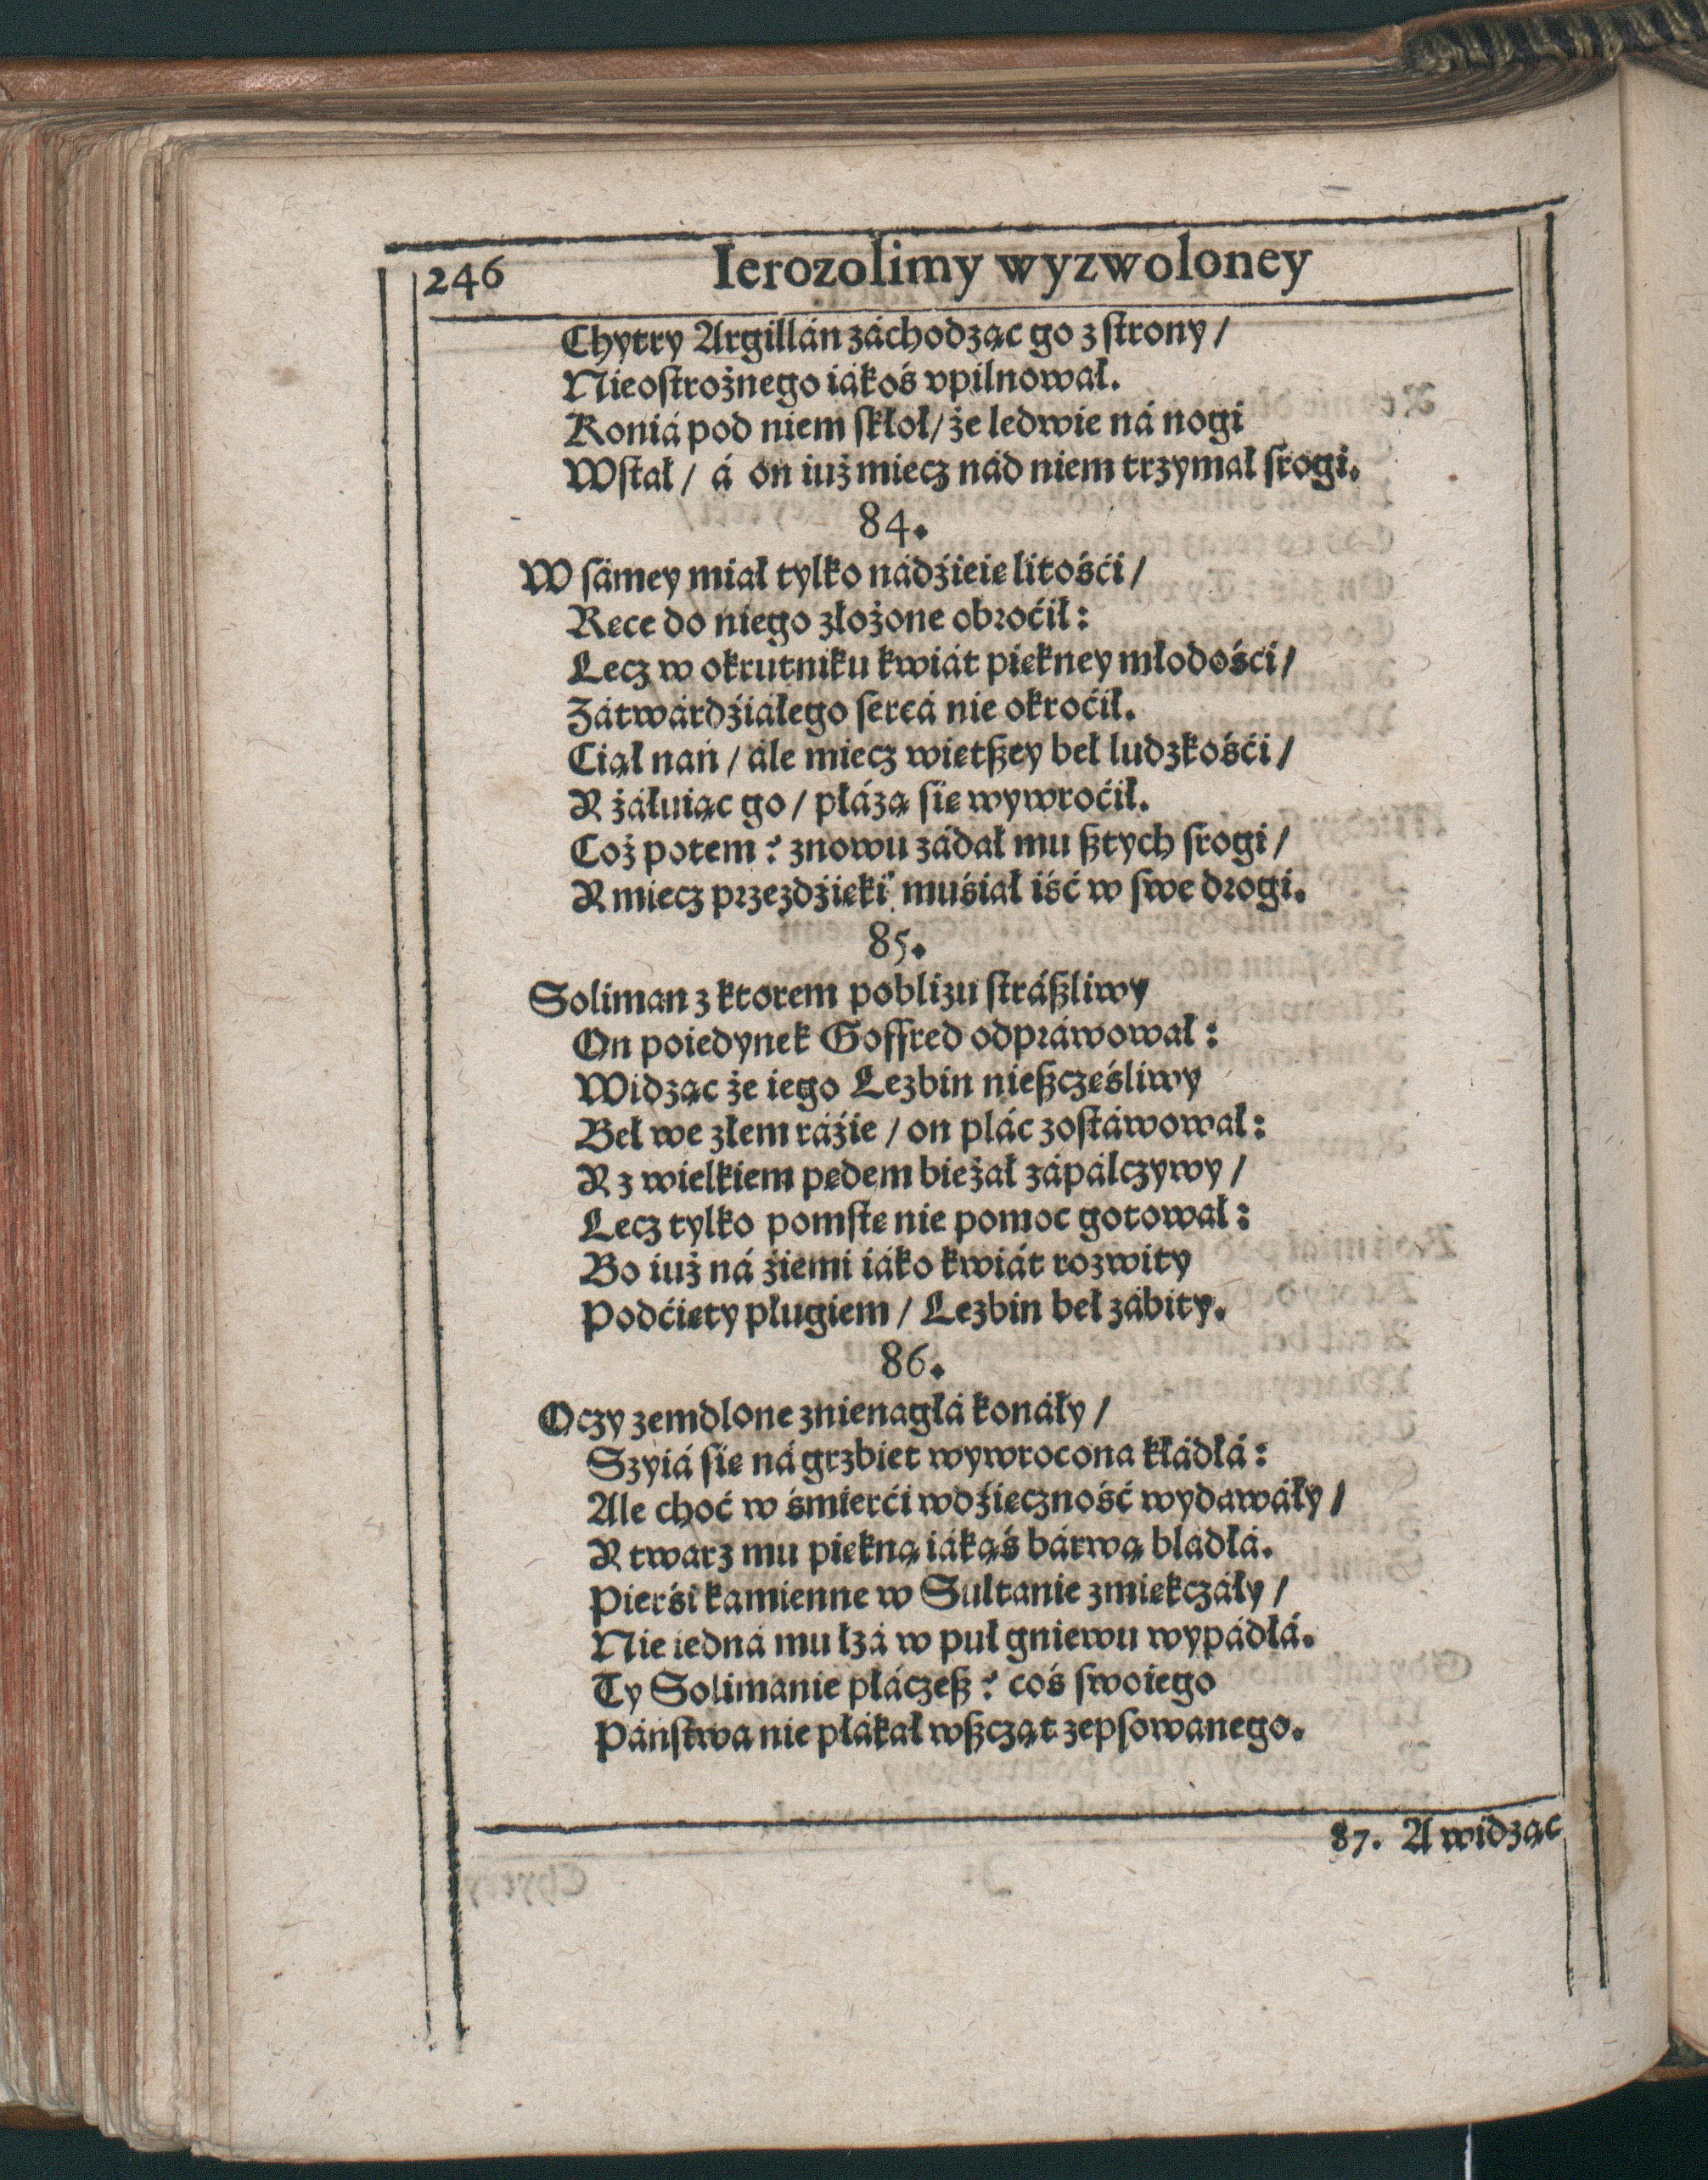 246 Ierozolimy wyzwoloney
Chytry Argillán záchodząc go z ſtrony /
Nieoſtrożnego iákoś vpilnował.
Koniá pod niem ſkłoł / że ledwie ná nogi
Wſtał / á on iuż miecz nád niem trzymał ſrogi.
84.
W ſámey miał tylko nádźieię litośći /
Ręce do niego złożone obroćił:
Lecz w okrutniku kwiát piękney młodośći /
Zátwárdźiáłego ſercá nie okroćił.
Ciął nań / ále miecz więtßey beł ludzkośći /
Y żáłuiąc go / płázą ſię wywroćił.
Coż potem? znowu zádał mu ßtych ſrogi /
Y miecz przezdźięki muśiał iść w ſwe drogi.
85.
Soliman z ktorem poblizu ſtráßliwy
On poiedynek Goffred odpráwował:
Widząc że iego Lezbin nießczęśliwy
Beł we złem ráźie / on plác zoſtáwował:
Y z wielkiem pędem bieżał zápálczywy /
Lecz tylko pomſtę nie pomoc gotował:
Bo iuż ná źiemi iáko kwiát rozwity
Podćięty pługiem / Lezbin beł zábity.
86.
Oczy zemdlone znienagłá konáły /
Szyiá ſię ná grzbiet wywrocona kłádłá:
Ale choć w śmierći wdźięczność wydawáły /
Y twarz mu piękną iákąś bárwą bládłá.
Pierśi kamienne w Sułtanie zmiękczáły /
Nie iedná mu łzá w puł gniewu wypádłá.
Ty Solimanie płáczeß? coś ſwoiego
Páńſtwa nie płákał wßcząt zepſowanego.
87. A widząc